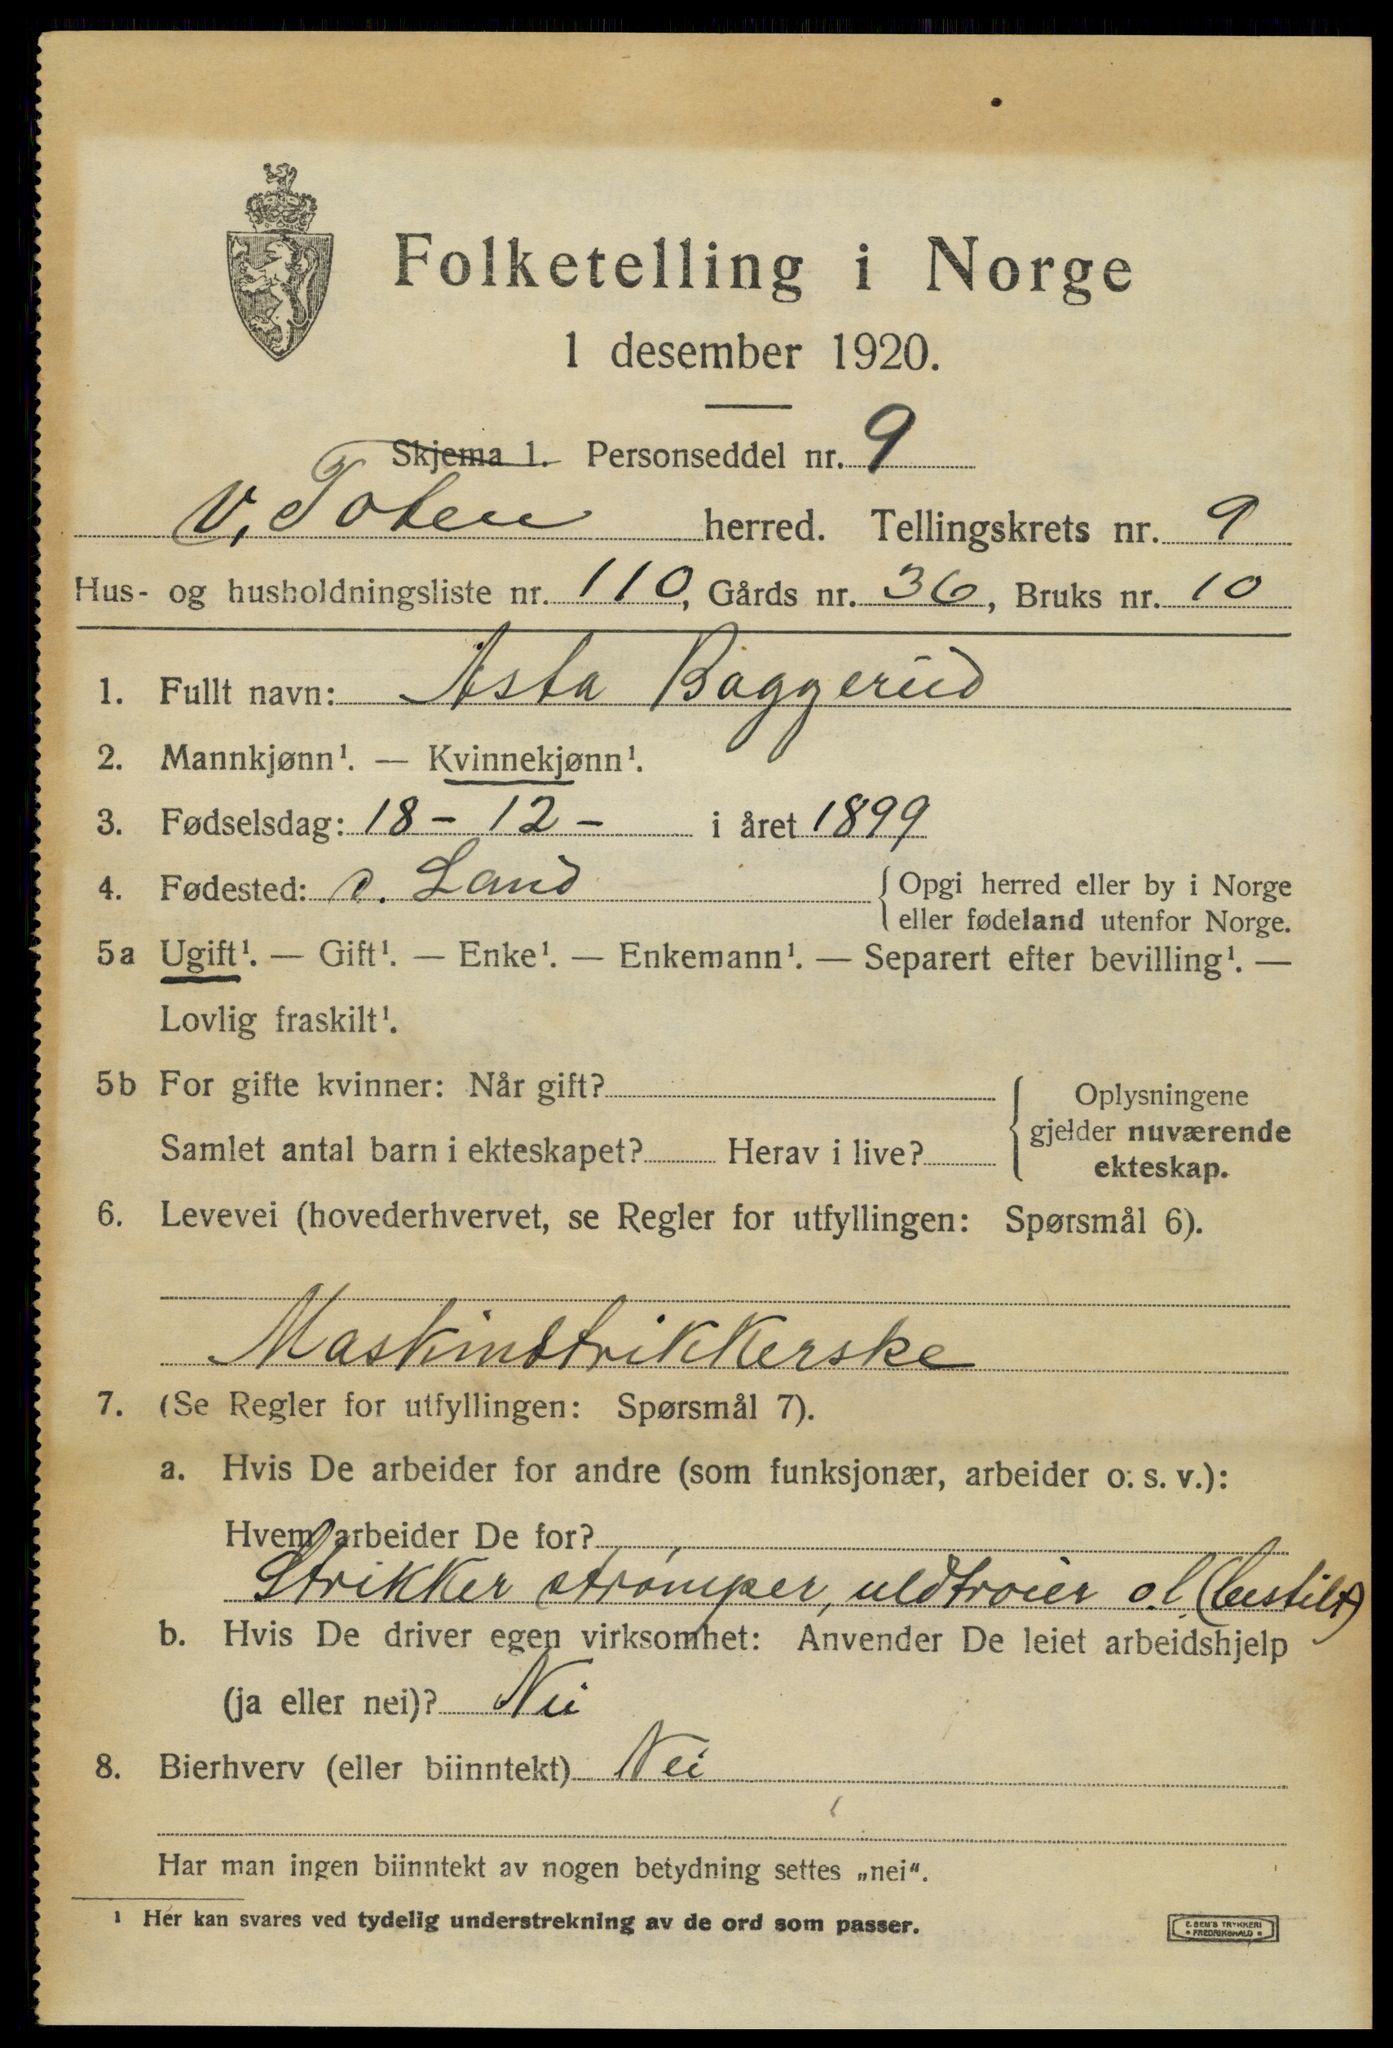 Folketelling i Norge
1 desember 1920.
Skjema 1. Personseddel nr. 9
V. Toten herred. Tellingskrets nr. 9
Hus- og husholdningsliste nr. 110, Gårds nr. 36, Bruks nr. 10
1. Fullt navn: Asta Baggerud
2. Mannkjønn¹. — Kvinnekjønn¹.
3. Fødselsdag: 18 - 12 - i året 1899
4. Fødested: S. Land { Opgi herred eller by i Norge
eller fødeland utenfor Norge.
5a Ugift¹. — Gift¹. — Enke¹. — Enkemann¹. — Separert efter bevilling¹. —
Lovlig fraskilt¹.
5b For gifte kvinner: Når gift?
Samlet antal barn i ekteskapet? Herav i live?
Oplysningene
gjelder nuværende
ekteskap.
6. Levevei (hovederhvervet, se Regler for utfyllingen: Spørsmål 6).
Maskinstrikkerske
7. (Se Regler for utfyllingen: Spørsmål 7).
a. Hvis De arbeider for andre (som funksjonær, arbeider o. s. v.):
Hvem arbeider De for?
Strikker strømper, uldtrøier o.l. (bestilt)
b. Hvis De driver egen virksomhet: Anvender De leiet arbeidshjelp
(ja eller nei)? Nei
8. Bierhverv (eller biinntekt) Nei
Har man ingen biinntekt av nogen betydning settes „nei“.
¹ Her kan svares ved tydelig understrekning av de ord som passer.
E. SEM'S TRYKKERI
* FREDRIKSHALD *